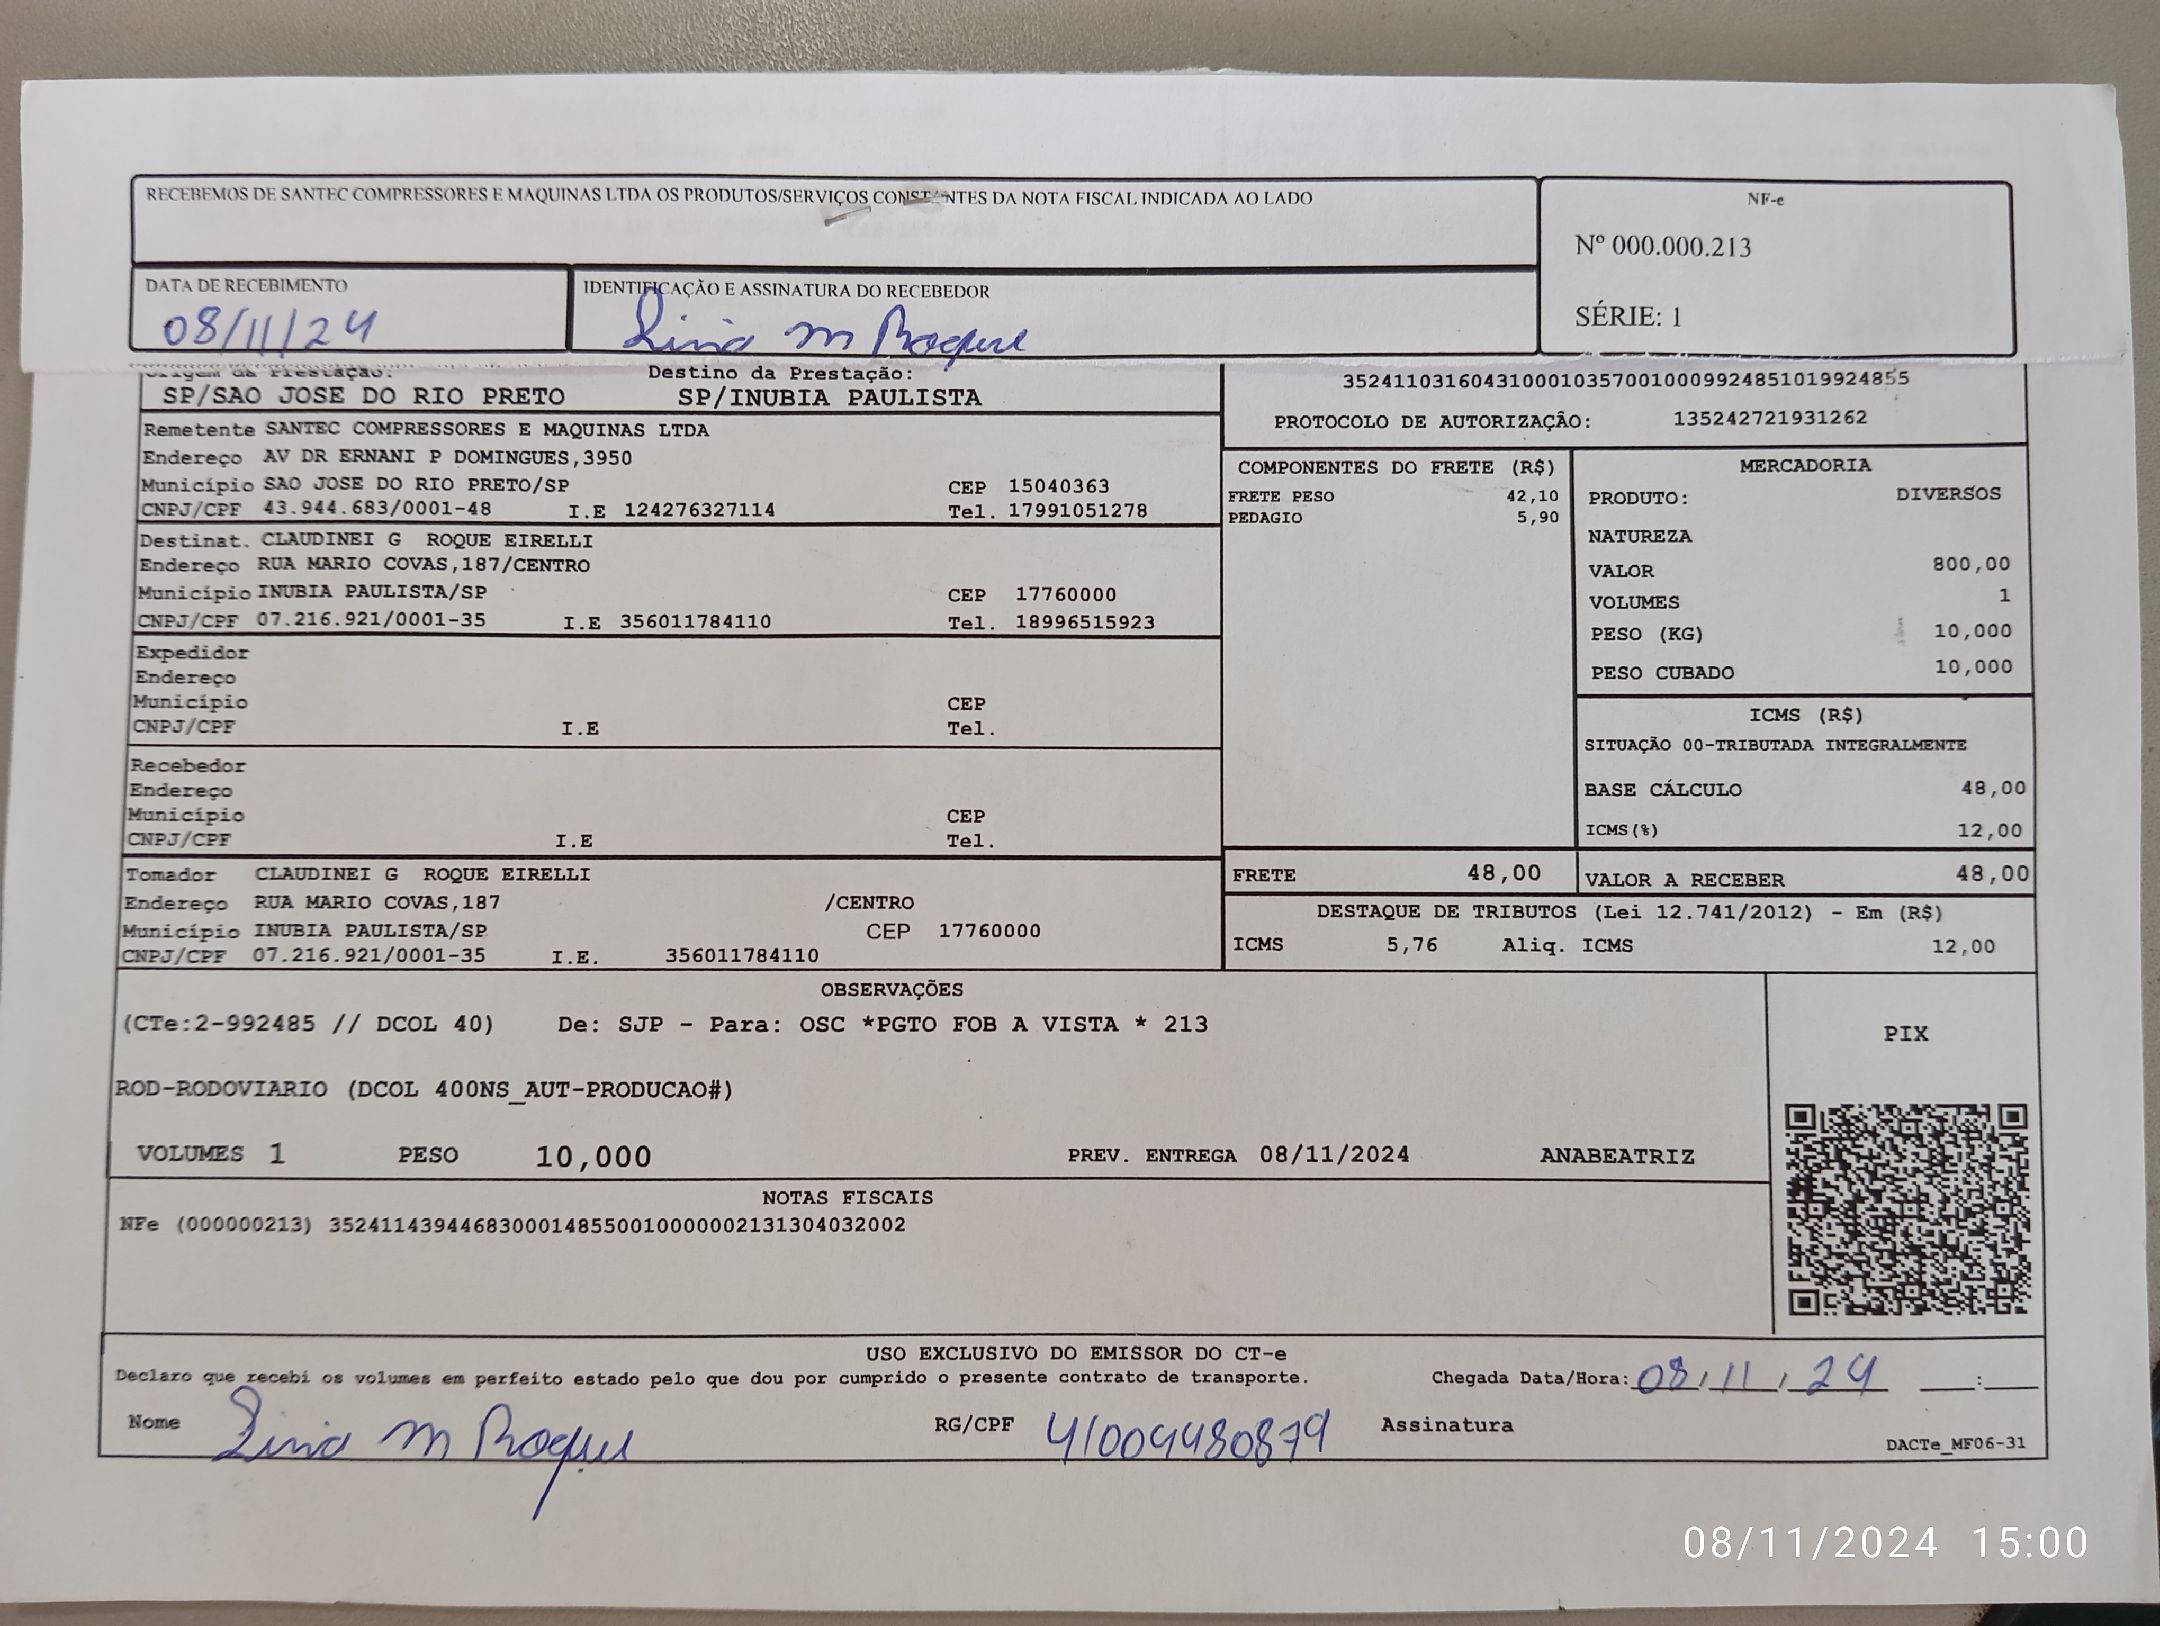 RECEBEMOS DE SANTEC COMPRESSORES E MAQUINAS LTDA OS PRODUTOS/SERVIÇOS CONSTANTES DA NOTA FISCAL INDICADA AO LADO
NF-e
Nº 000.000.213
SÉRIE: 1
DATA DE RECEBIMENTO
08/11/24
IDENTIFICAÇÃO E ASSINATURA DO RECEBEDOR
M Roque
Origem da Prestação:
SP/SAO JOSE DO RIO PRETO
Destino da Prestação:
SP/INUBIA PAULISTA
35241103160431000103570010009924851019924855
PROTOCOLO DE AUTORIZAÇÂO: 135242721931262
Remetente SANTEC COMPRESSORES E MAQUINAS LTDA
Endereço AV DR ERNANI P DOMINGUES,3950
Município SAO JOSE DO RIO PRETO/SP CEP 15040363
CNPJ/CPF 43.944.683/0001-48 I.E 124276327114 Tel. 17991051278
Destinat. CLAUDINEI G ROQUE EIRELLI
Endereço RUA MARIO COVAS,187/CENTRO
Município INUBIA PAULISTA/SP CEP 17760000
CNPJ/CPF 07.216.921/0001-35 I.E 356011784110 Tel. 18996515923
Expedidor
Endereço
Município CEP
CNPJ/CPF I.E Tel.
Recebedor
Endereço
Município CEP
CNPJ/CPF I.E Tel.
Tomador CLAUDINEI G ROQUE EIRELLI
Endereço RUA MARIO COVAS,187 /CENTRO
Município INUBIA PAULISTA/SP CEP 17760000
CNPJ/CPF 07.216.921/0001-35 I.E. 356011784110
COMPONENTES DO FRETE (R$)
FRETE PESO 42,10
PEDAGIO 5,90
MERCADORIA
PRODUTO: DIVERSOS
NATUREZA
VALOR 800,00
VOLUMES 1
PESO (KG) 10,000
PESO CUBADO 10,000
ICMS (R$)
SITUAÇÃO 00-TRIBUTADA INTEGRALMENTE
BASE CÁLCULO 48,00
ICMS(%) 12,00
FRETE 48,00
VALOR A RECEBER 48,00
DESTAQUE DE TRIBUTOS (Lei 12.741/2012) - Em (R$)
ICMS 5,76 Aliq. ICMS 12,00
OBSERVAÇÕES
(CTe:2-992485 // DCOL 40) De: SJP - Para: OSC *PGTO FOB A VISTA * 213
ROD-RODOVIARIO (DCOL 400NS_AUT-PRODUCAO#)
VOLUMES 1 PESO 10,000 PREV. ENTREGA 08/11/2024 ANABEATRIZ
PIX
NOTAS FISCAIS
NFe (000000213) 35241143944683000148550010000002131304032002
USO EXCLUSIVO DO EMISSOR DO CT-e
Declaro que recebi os volumes em perfeito estado pelo que dou por cumprido o presente contrato de transporte.
Chegada Data/Hora: 08/11/24 ___:___
Nome M Roque RG/CPF 41009480879 Assinatura
DACTe_MF06-31
08/11/2024 15:00